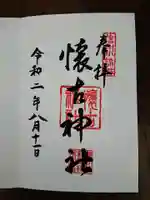 奉拝
懐古神社
令和二年八月十一日